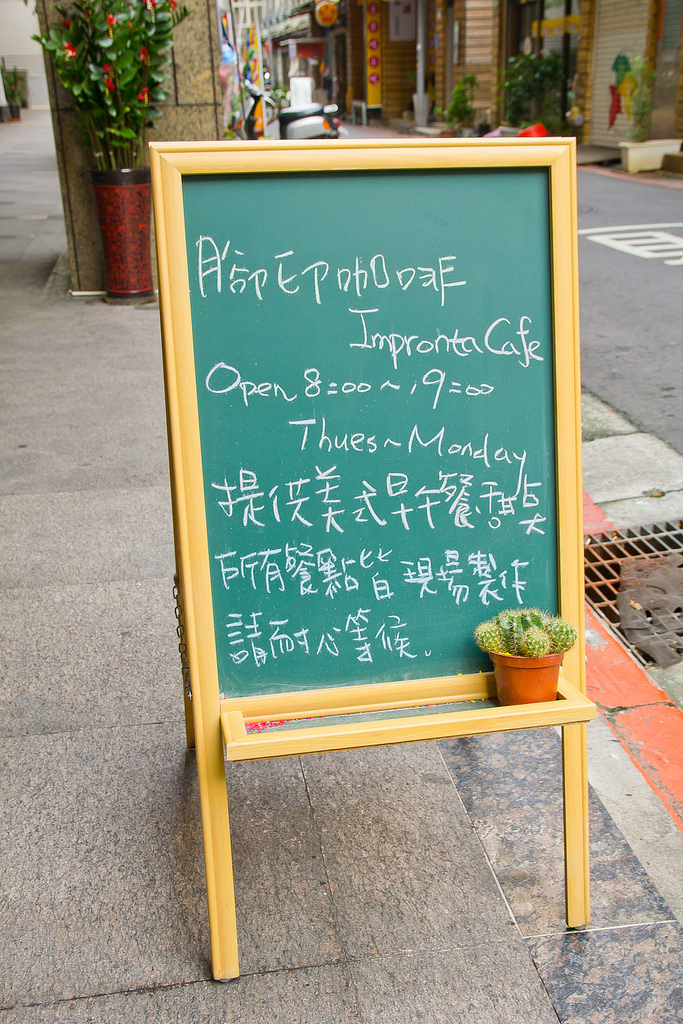 腳印咖啡
Impronta Cafe
Open 8:00~19:00
Thues~Monday
提供美式早午餐甜點
所有餐點皆現場製作
請耐心等候.